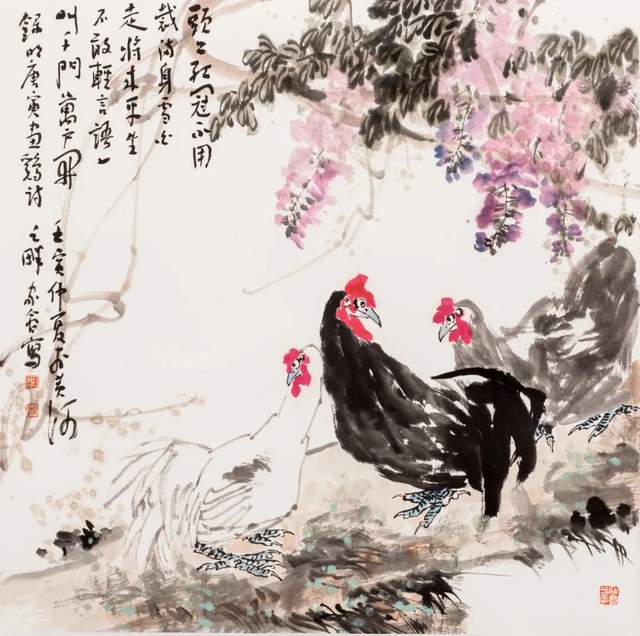 頭上紅冠不用
裁滿身雪白
走將來平生
不敢輕言語一
叫千門萬戶開
錄明唐寅畫鷄詩
壬寅仲夏於黃河
之畔 寫